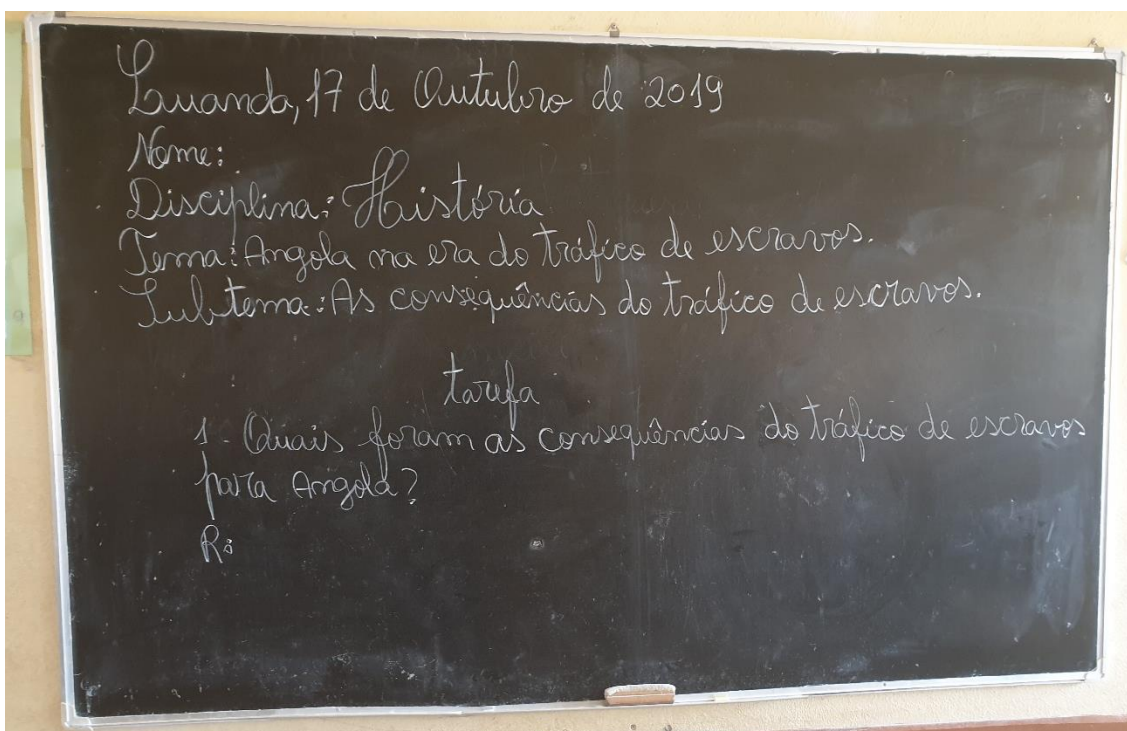 Luanda, 17 de Outubro de 2019
Nome:
Disciplina: História
Tema: Angola na era do tráfico de escravos.
Subtema: As consequências do tráfico de escravos.
tarefa
1- Quais foram as consequências do tráfico de escravos
para Angola?
R: